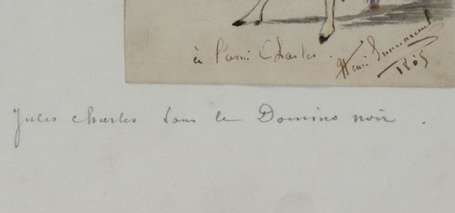 à l'ami Charles.
Henri
Jules Charles dans le Domino noir.